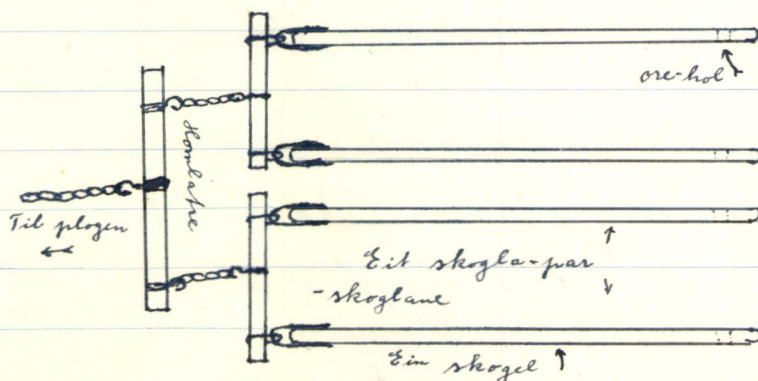 ore-hol
Homlatre
Til plogen
Eit skogla-par
-skoglane
Ein skogel